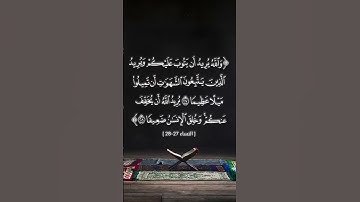 ﴿وَٱللَّهُ يُرِيدُ أَن يَتُوبَ عَلَيْكُمْ وَيُرِيدُ
ٱلَّذِينَ يَتَّبِعُونَ ٱلشَّهَوَٰتِ أَن تَمِيلُوا۟
مَيْلًا عَظِيمًا ۝ يُرِيدُ ٱللَّهُ أَن يُخَفِّفَ
عَنكُمْ ۚ وَخُلِقَ ٱلْإِنسَـٰنُ ضَعِيفًا ۝﴾
[ النساء 27-28 ]